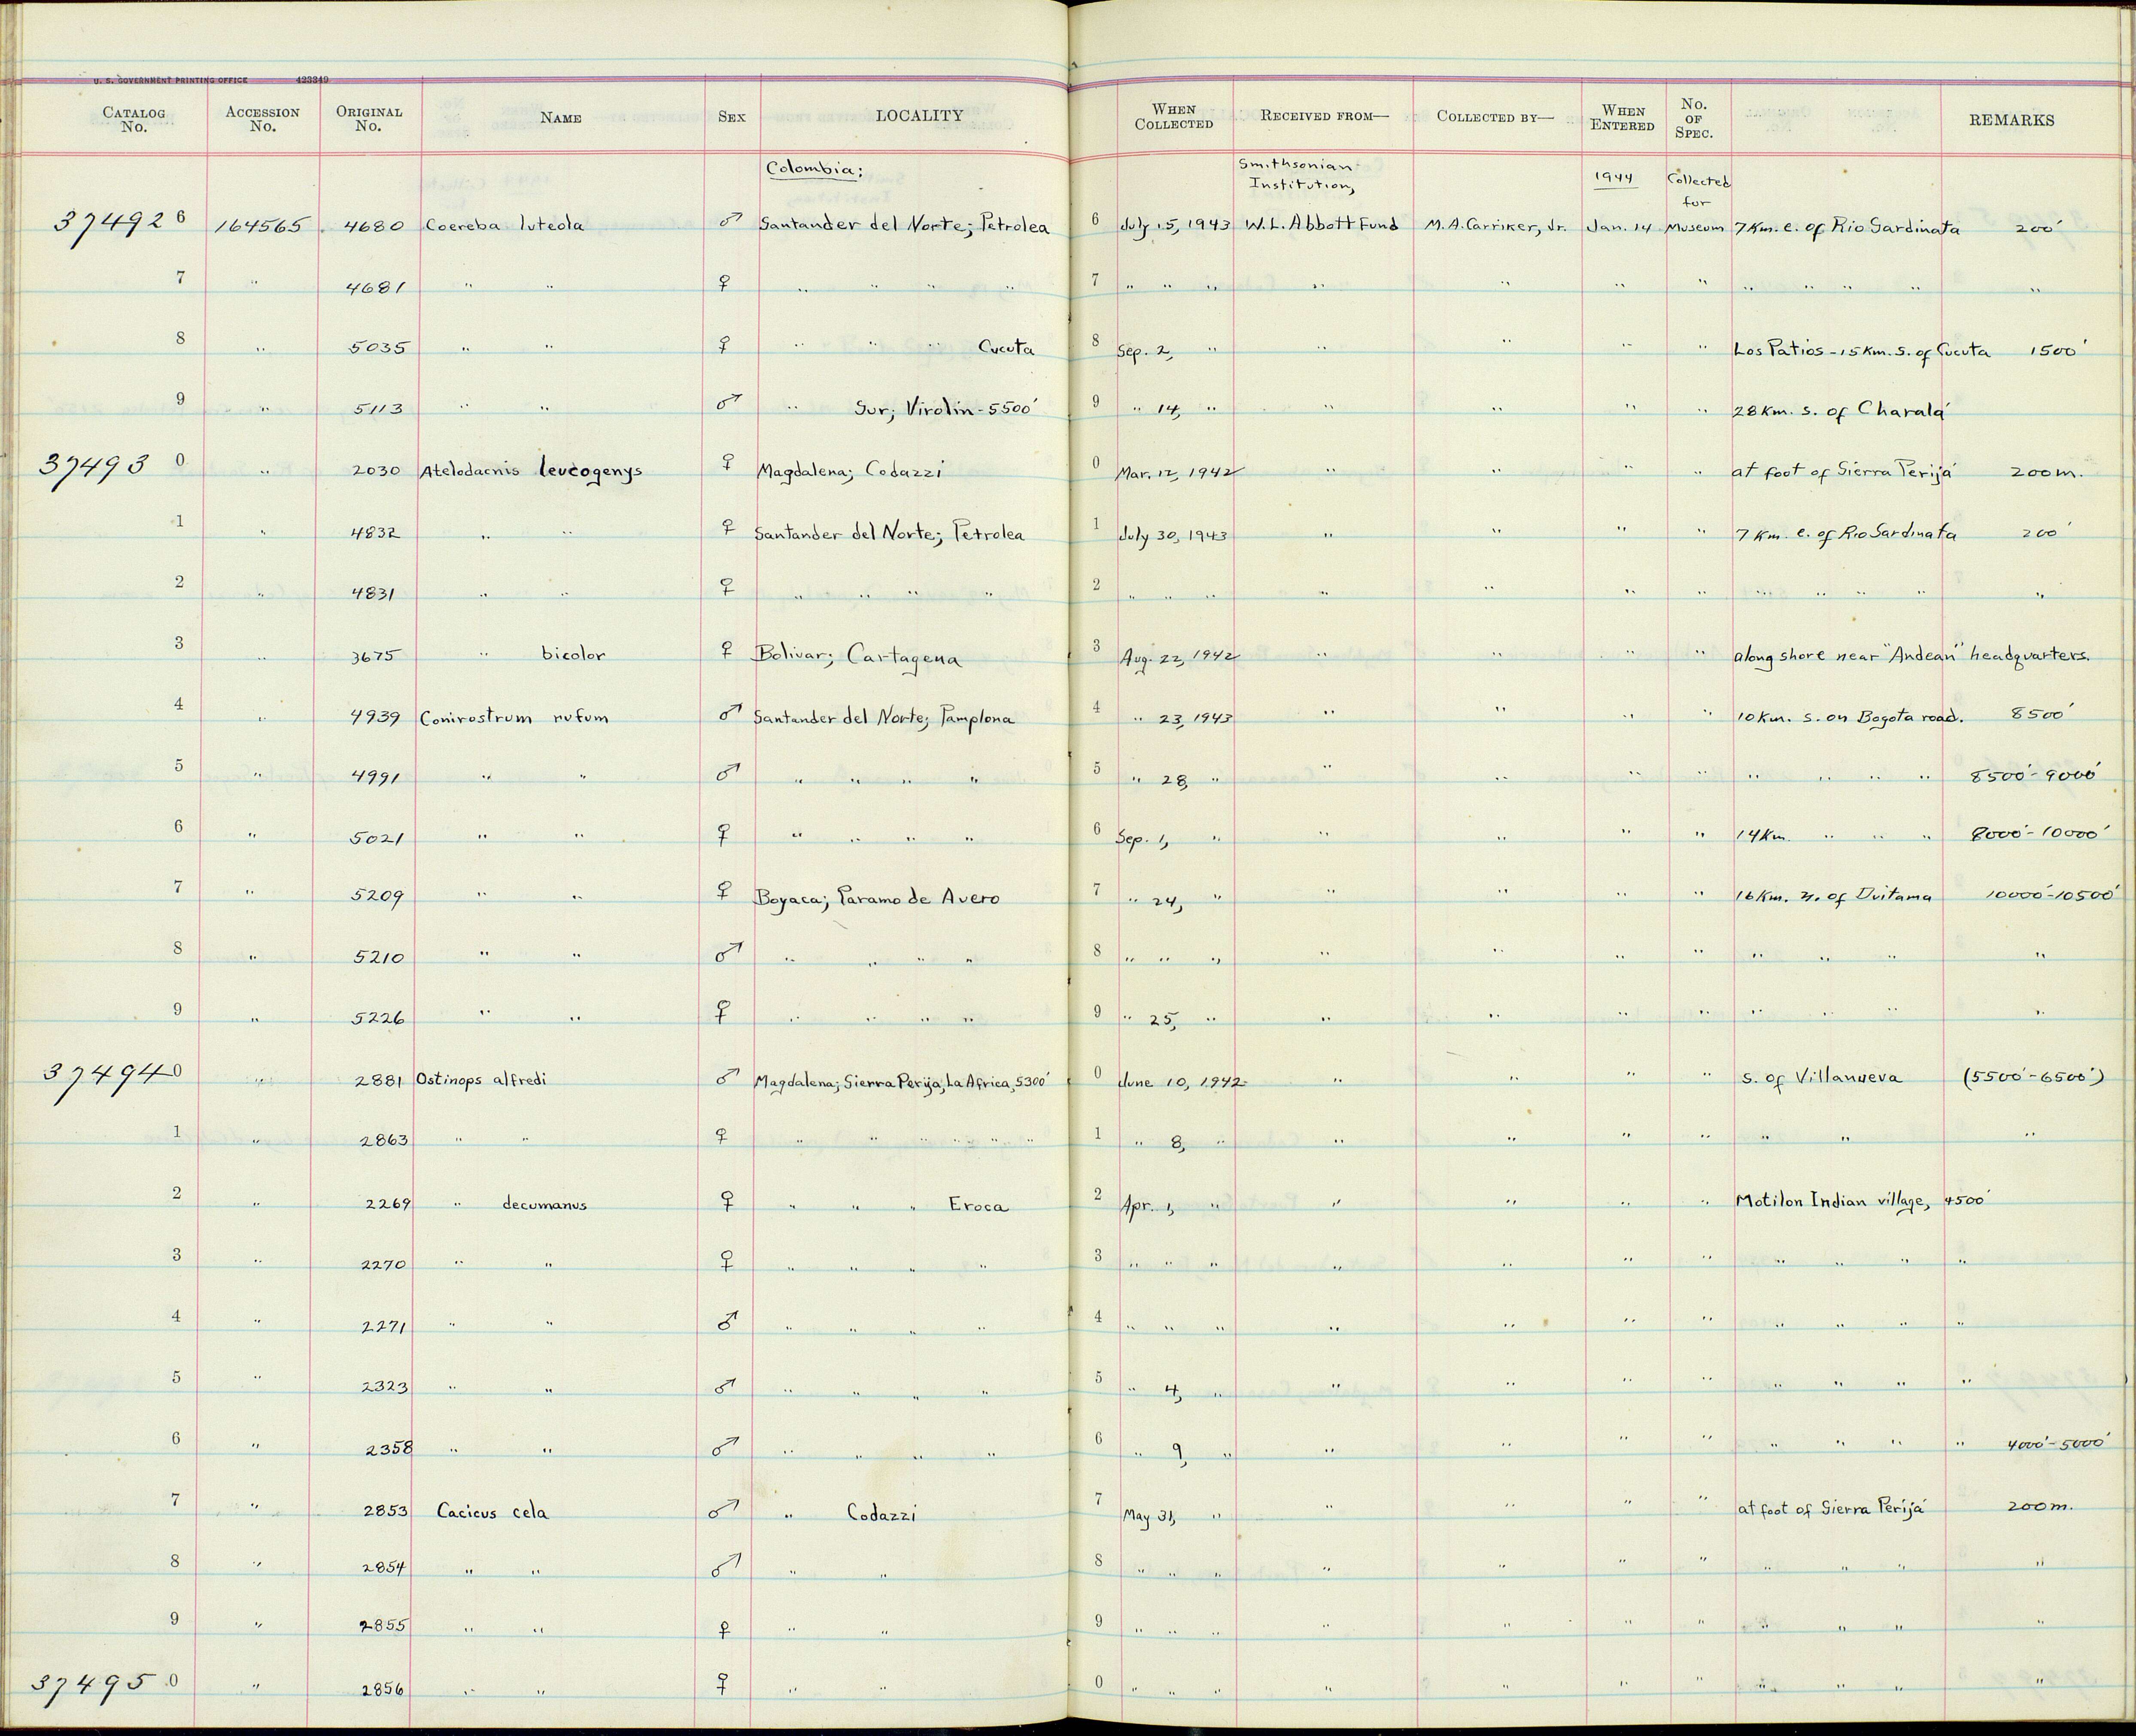 U. S. GOVERNMENT PRINTING OFFICE 423349
CATALOG No. ACCESSION No. ORIGINAL No. NAME SEX LOCALITY WHEN COLLECTED RECEIVED FROM— COLLECTED BY— WHEN ENTERED No. OF SPEC. REMARKS
Colombia; Smithsonian Institution, 1944 Collected for
37492 6 164565 4680 Coereba luteola ♂ Santander del Norte; Petrolea 6 July 15, 1943 W.L. Abbott Fund M.A. Carriker, Jr. Jan. 14 Museum 7 Km. e. of Rio Sardinata 200'
7 " 4681 " " ♀ " " " " 7 " " " " " " " " " " " "
8 " 5035 " " ♀ " " " Cucuta 8 Sep. 2, " " " " " Los Patios - 15 Km. S. of Cucuta 1500'
9 " 5113 " " ♂ " Sur; Virolin - 5500' 9 " 14, " " " " " 28 Km. s. of Charalá
37493 0 " 2030 Atelodacnis leucogenys ♀ Magdalena; Codazzi 0 Mar. 12, 1942 " " " " at foot of Sierra Perijá 200 m.
1 " 4832 " " ♀ Santander del Norte; Petrolea 1 July 30, 1943 " " " " 7 Km. e. of Rio Sardinata 200'
2 " 4831 " " ♀ " " " " 2 " " " " " " " " " " " "
3 " 3675 " bicolor ♀ Bolivar; Cartagena 3 Aug. 22, 1942 " " " " along shore near "Andean" headquarters.
4 " 4939 Conirostrum rufum ♂ Santander del Norte; Pamplona 4 " 23, 1943 " " " " 10 Km. s. on Bogota road. 8500'
5 " 4991 " " ♂ " " " " 5 " 28, " " " " " " " " " 8500' - 9000'
6 " 5021 " " ♀ " " " " 6 Sep. 1, " " " " " 14 Km. " " " 8000' - 10000'
7 " 5209 " " ♀ Boyaca; Paramo de Avero 7 " 24, " " " " " 16 Km. n. of Duitama 10000' - 10500'
8 " 5210 " " ♂ " " " " 8 " " " " " " " " " " "
9 " 5226 " " ♀ " " " " 9 " 25, " " " " " " " " "
37494 0 " 2881 Ostinops alfredi ♂ Magdalena; Sierra Perija, La Africa, 5300' 0 June 10, 1942 " " " " S. of Villanueva (5500' - 6500')
1 " 2863 " " ♀ " " " " " " " 1 " 8, " " " " " " " "
2 " 2269 " decumanus ♀ " " " Eroca 2 Apr. 1, " " " " " Motilon Indian village, 4500'
3 " 2270 " " ♀ " " " " 3 " " " " " " " " " " "
4 " 2271 " " ♂ " " " " 4 " " " " " " " " " " "
5 " 2323 " " ♂ " " " " 5 " 4, " " " " " " " " "
6 " 2358 " " ♂ " " " " 6 " 9, " " " " " " " " " 4000' - 5000'
7 " 2853 Cacicus cela ♂ " Codazzi 7 May 31, " " " " " at foot of Sierra Perijá 200 m.
8 " 2854 " " ♂ " " 8 " " " " " " " " " " "
9 " 2855 " " ♀ " " 9 " " " " " " " " " " "
37495 0 " 2856 " " ♀ " " 0 " " " " " " " " " " "